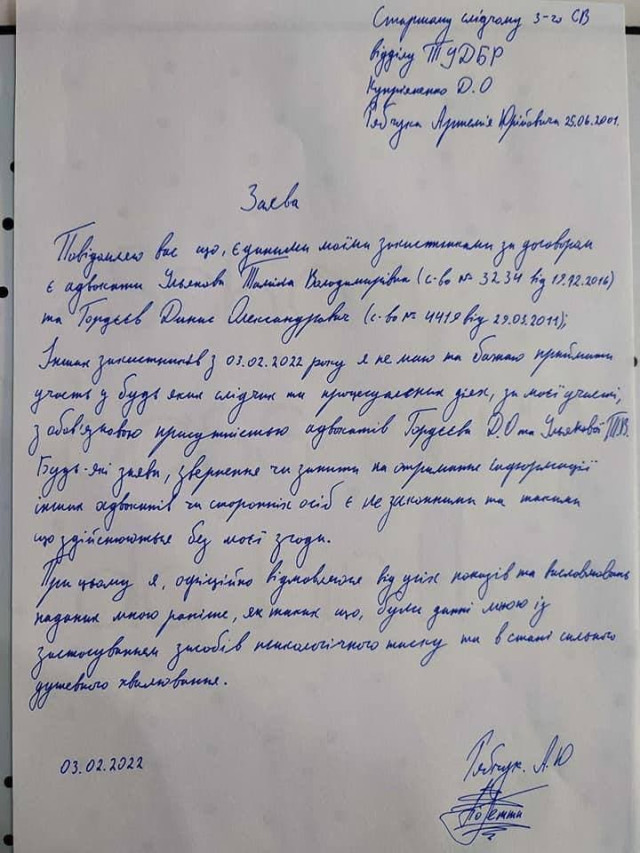 Старшому слідчому 3-го СВ
відділу ТУДБР
Купріяненко Д.О
Рябчука Артемія Юрійовича 25.06.2001.
Заява
Повідомляю вас що, єдиними моїми захистниками за договорам
є адвокати Ільякова Таміла Володимирівна (с-во № 3234 від 19.12.2016)
та Гордєєв Динис Олександрович (с-во № 4419 від 29.03.2011);
Інших захистників з 03.02.2022 року я не маю та бажаю приймати
участь у будь яких слідчих та процесуальних діях, за моєї участі,
з обов'язковою присутністью адвокатів Гордєєва Д.О та Ільякової Т.В.
Будь-які заяви, звернення чи запити на отримання інформації
інших адвокатів чи сторонніх осіб є не законними та такими
що здійснюються без моєї згоди.
При цьому я, офіційно відмовляюся від усіх показів та висловлювань
наданих мною раніше, як таких що, були данні мною із
застосуванням засобів психологічного тиску та в стані сильного
душевного хвилювання.
03.02.2022
Рябчук. А.Ю